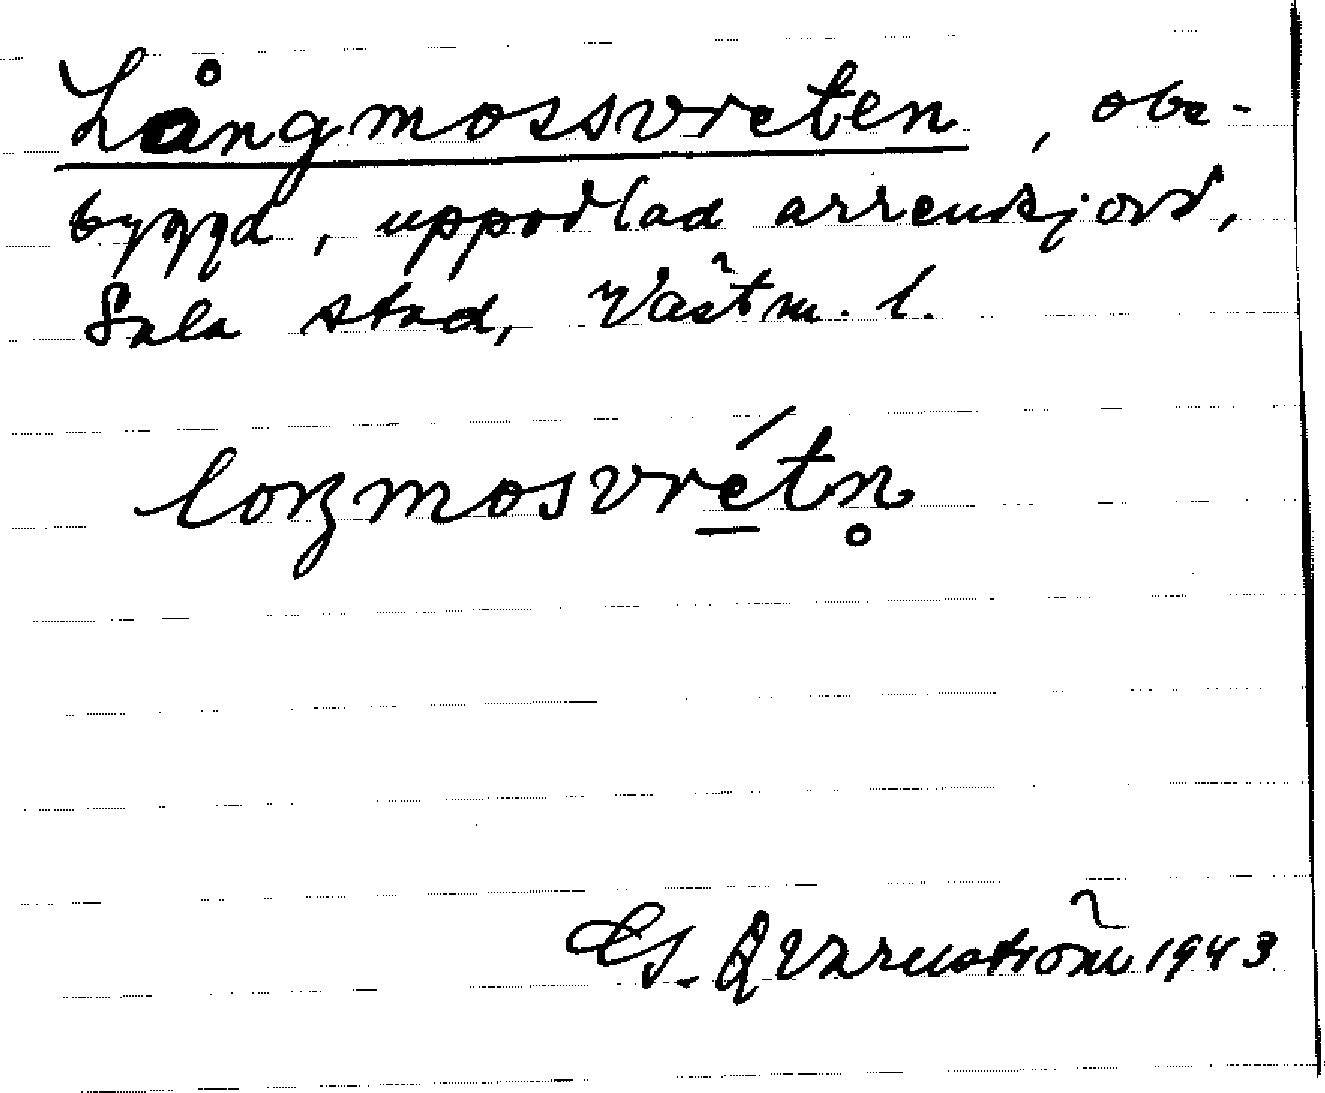 Långmossvreten, obe-
byggd, uppodlad arrendejord,
Sala stad, Västm. l.
loŋmosvrétn̥
G. Qvarnström 1943